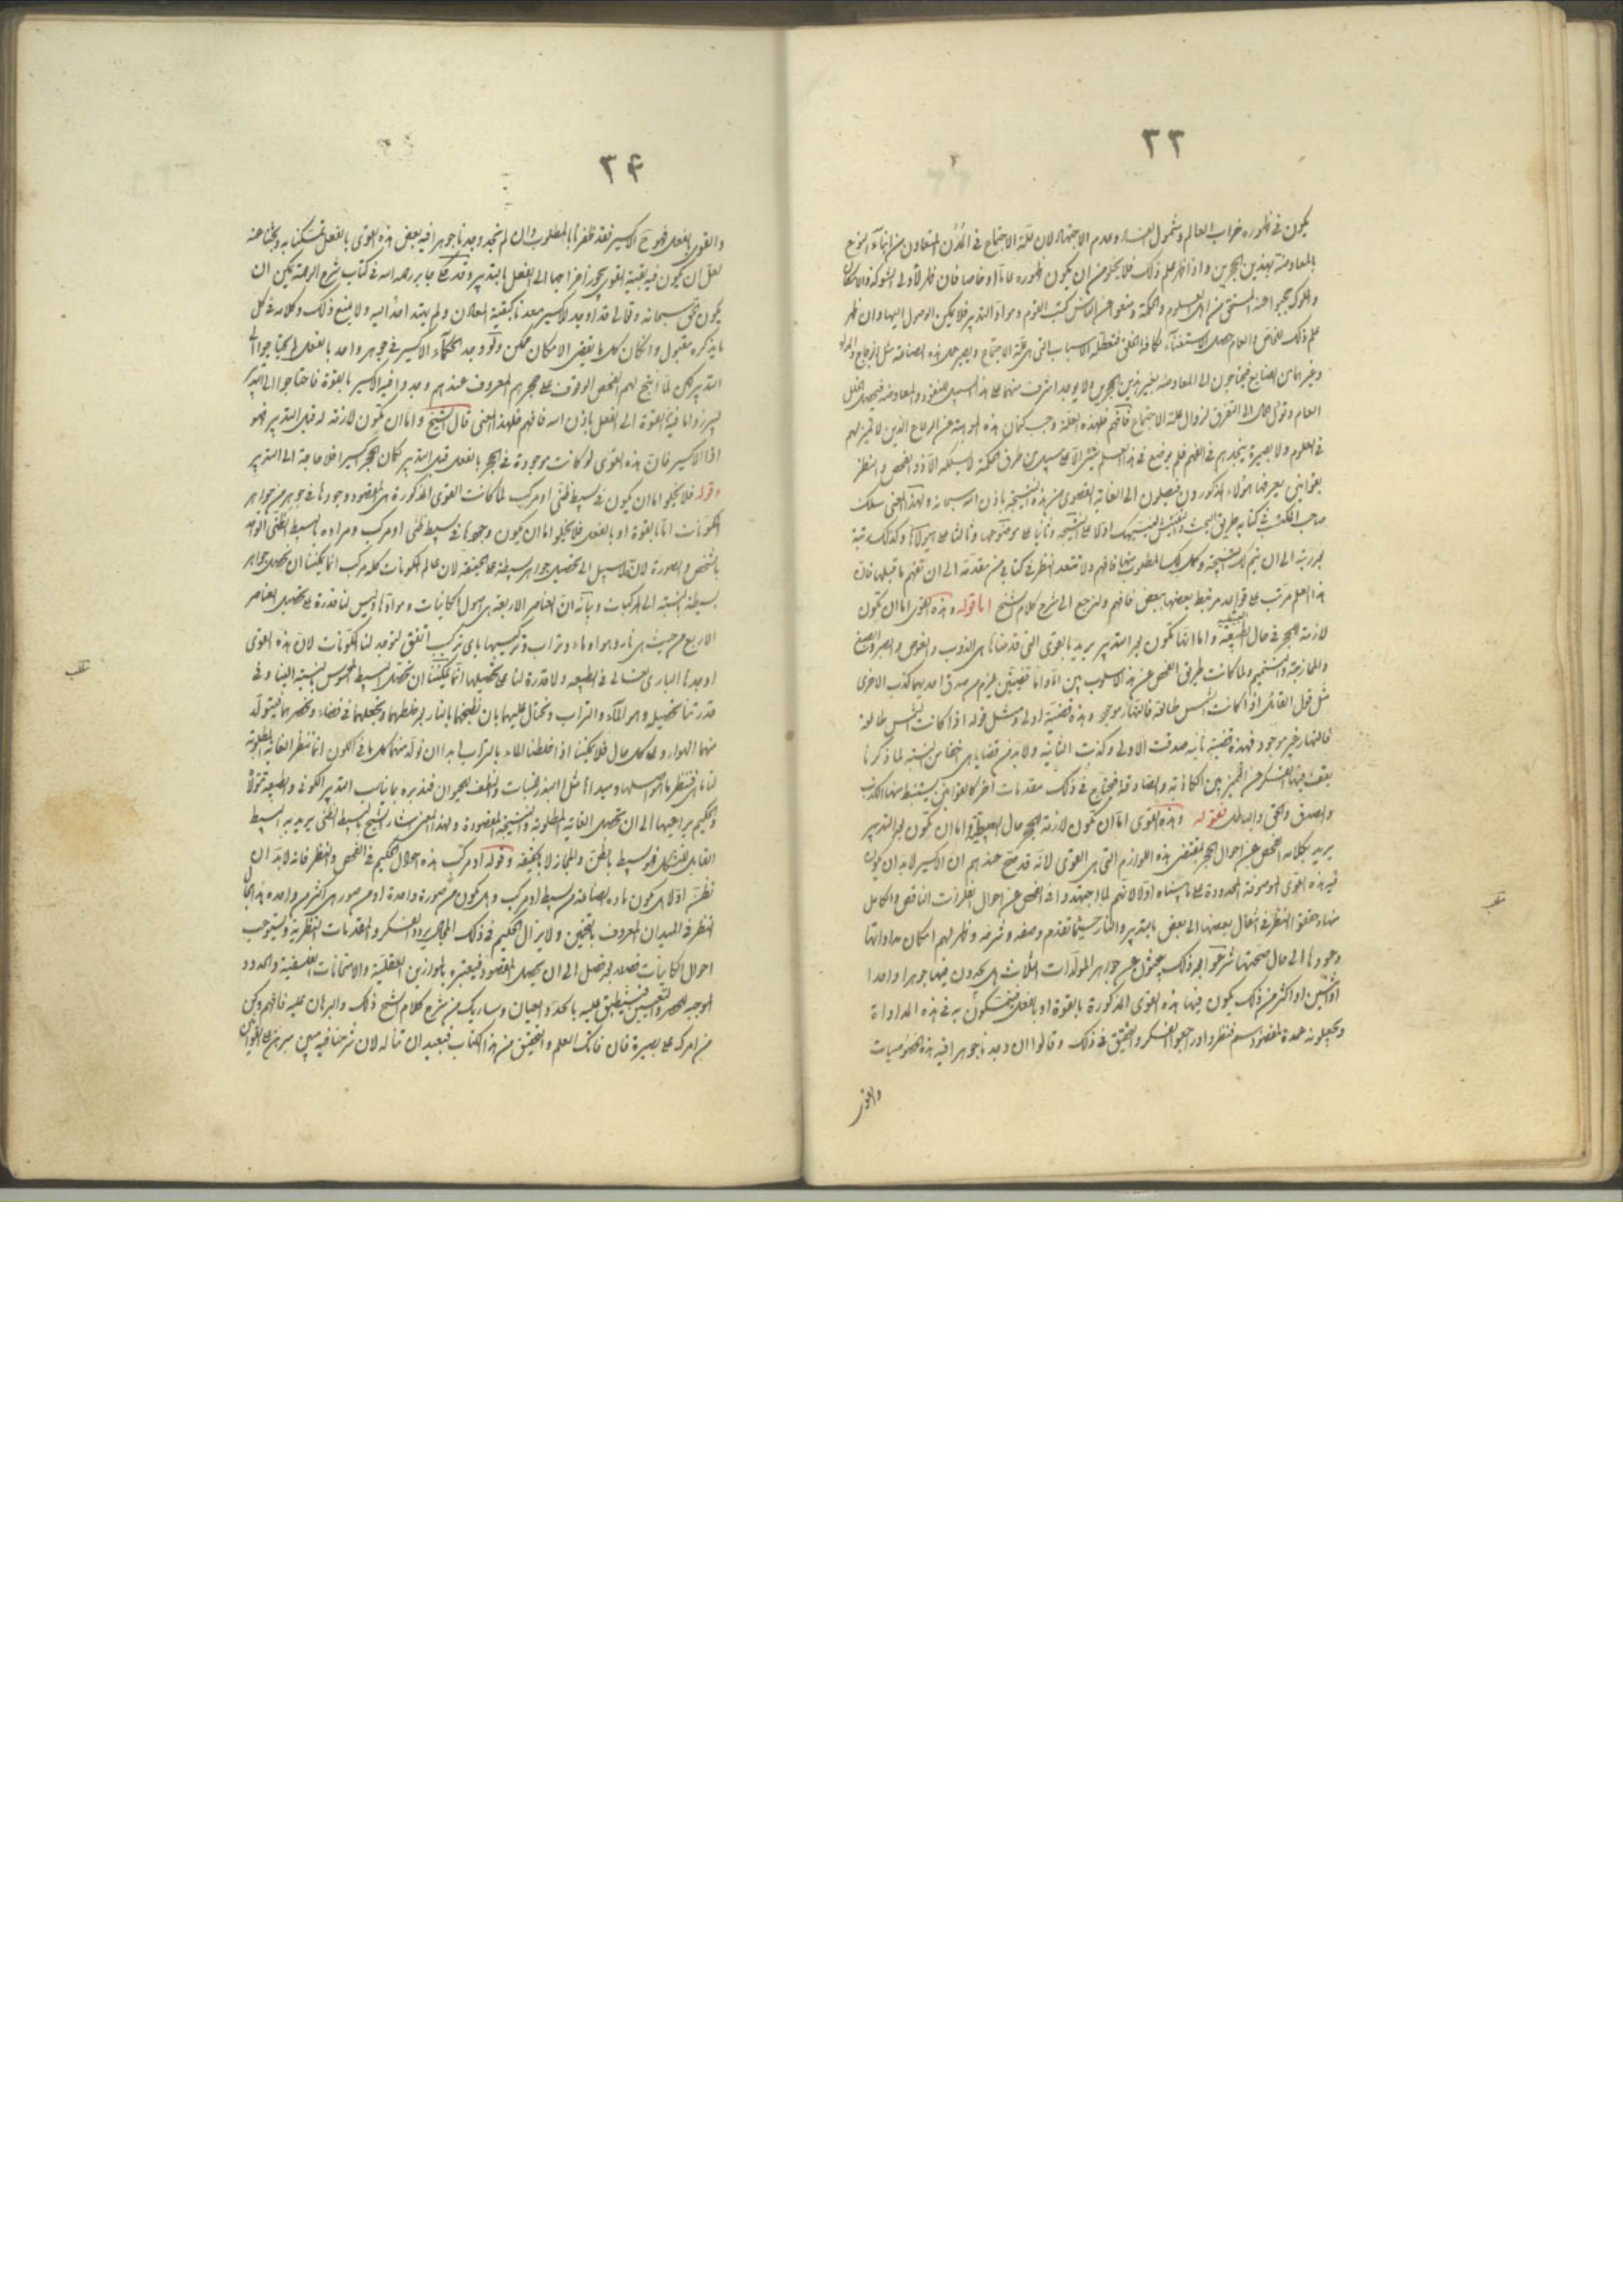 ٣٣
يكون في ظهوره خراب العالم وشمول الفساد وعدم الاجتهاد لان علة الاجتماع في المدن التعاون من ابناء النوع
بالمعاوضة بهذين الحجرين واذا ظهر علم ذلك فلا يخلو من ان يكون ظهوره عاما او خاصا فان ظهر لاولى الشوكة والامكان
والملوك حجبوا عنه المستحق من اهل العلوم والحكمة ومنعوا عن الناس كتب القوم ومواد التدبير فلا يمكن الوصول اليها وان ظهر
علم ذلك للخاص والعام حصل الاستغناء لكافة الخلق فتعطلت الاسباب التي هي علة الاجتماع ويصير حال هذه الصناعة مثل الزجاج
وغيرها من الصنايع فيحتاجون الى المعاوضة بغير هذين الحجرين ولا يوجد اشرف منهما على هذا السبيل للنقود والمعاوضة فيحصل الخلل
العام وتؤل الحال الى التفرق لزوال علة الاجتماع فافهم فلهذه العلة وجب كتمان هذه الموهبة عن الرعاع الذين لا تمييز لهم
في العلوم ولا بصيرة ينجدهم في الفهم فلم يوضع في هذا العلم شئ الا على سبيل من طرق الحكمة لا يسلكه الا ذو الفحص والنظر
بقوانين يعرفها هؤلاء المذكورون فيصلون الى الغاية القصوى من هذه النتيجة باذن الله سبحانه ولهذا المعنى سلك
صاحب المكتسب في كتابه طريق البحث والتفتيش لينبهك اولا على النتيجة وثانيا على موضوعها وثالثا على هيولاها وكذلك رتبة
بعد رتبة الى ان يتم لك النتيجة وكمال المطلوب منها فافهم ولا تتعد النظر في كتابي من مقدمة الى ان تفهم ما قبلها فان
هذا العلم مرتب على قواعد مرتبط بعضها ببعض فافهم ولنرجع الى شرح كلام الشيخ اما قوله وهذه القوى اما ان تكون
لازمة للحجر في حال الطبيعة واما انها تكون بعد التدبير يريد بالقوى التي قدمناها هي الذوب والغوص والصبر والصبغ
والممازجة والتتميم ولما كانت طريق الفحص عن هذا الاسلوب بين اما واما قضيتين يلزم من صدق احديهما كذب الاخرى
مثل قول القائل اذا كانت الشمس طالعة فالنهار موجود وهذه قضية اولى ومثل قوله اذا كانت الشمس طالعة
فالنهار غير موجود فهذه قضية ثانية صدقت الاولى وكذبت الثانية ولا بد من قضايا هي بالنسبة لما ذكرنا
يقف فيها الفكر عن التمييز بين الكاذبة والصادقة فيحتاج في ذلك مقدمات اخر كالقوانين يستنبط منها الكذب
والصدق والحق والباطل فقوله وهذه القوى اما ان تكون لازمة للحجر حال الطبيعة واما ان تكون بعد التدبير
يريد بكلامه الفحص عن احوال الحجر بمقتضى هذه اللوازم التي هي القوى لانه قد صح عندهم ان الاكسير لا بد ان يكون
فيه هذه القوى الموصوفة المحدودة على ما بيناه اولا لانهم لما اجتهدوا في الفحص عن احوال الفلزات الناقص والكامل
منها وحققوا النظر في انتقال بعضها الى بعض بالتدبير والنار حيثما تقدم وصفه وشرحه وظهر لهم امكان مداواتها
وعودها الى حال صحتها شرعوا بعد ذلك يبحثون عن جواهر المولدات الثلاث هل يجدون فيها جوهرا واحدا
او اثنين او اكثر من ذلك يكون فيها هذه القوى المذكورة بالقوة او بالفعل فيتمسكون به في هذه المداواة
ويجعلونه عمدة لمقصودهم فنظروا وراجعوا الفكر والتحقيق في ذلك وقالوا ان وجدنا جوهرا فيه هذه الخصوصيات
والقوى
٣٤
والقوى بالفعل فهو ح الاكسير فقد ظفرنا بالمطلوب وان لم نجد وجدنا جوهرا فيه بعض هذه القوى بالفعل تمسكنا به وبحثنا عنه
لعل ان يكون فيه بقية القوى يجوز اخراجها الى الفعل بالتدبير وقد حكى جابر رحمه الله في كتاب شرح الرحمة يمكن ان
يكون الحق سبحانه وتعالى قد اوجد الاكسير معدنا كبقية المعادن ولم يهتد احد اليه ولا يمنع ذلك وكلامه في كل
ما يذكره مقبول وان كان كل ما يقتضي الامكان ممكن ولو وجد الحكماء الاكسير في جوهر واحد بالفعل لم يحتاجوا الى
التدبير لكن لما انتج لهم الفحص الوقوف على حجرهم المعروف عندهم وجدوا فيه الاكسير بالقوة فاحتاجوا الى التدبير
ليبرزوا ما فيه بالقوة الى الفعل باذن الله فافهم فلهذا المعنى قال الشيخ واما ان تكون لازمة له قبل التدبير فهو
اذا الاكسير فان هذه القوى لو كانت موجودة في الحجر بالفعل قبل التدبير لكان الحجر اكسيرا فلا حاجة الى التدبير
وقوله فلا يخلو اما ان يكون في بسيط ظني او مركب لما كانت القوى المذكورة هي المقصود وجودها في جوهر من جواهر
المكونات اما بالقوة او بالفعل فلا يخلو اما ان يكون وجودها في بسيط ظني او مركب ومراده بالبسيط الظني الواحد
بالشخص والصورة لان لا سبيل الى تحصيل جواهر بسيطة على الحقيقة لان عالم المكونات كله مركب انما يمكننا ان نحصل جواهر
بسيطة بالنسبة الى المركبات وبيانه ان العناصر الاربعة هي اصول الكاينات وموادها وليس لنا قدرة على تحصيل العناصر
الاربع من حيث هي نار وهواء وماء وتراب وتركيبها باي تركيب اتفق لتوجد لنا المكونات لان هذه القوى
اوجدها الباري تعالى في الطبيعة ولا قدرة لنا على تحصيلها انما يمكننا ان نحصل البسيط المحسوس بالنسبة الينا وفي
قدرتنا تحصيله وهو الماء والتراب ونحتال عليهما بان نطبخهما بالنار بعد خلطهما ونجعلهما في فضاء ونحصرهما فيتولد
منهما الهواء وعلى كل حال فلا يمكننا اذا خلطنا الماء بالتراب ابدا ان نولد منهما كل ما في الكون انما ننظر الغاية المطلوبة
لنا ما هي فننظر ما اصولها ومبدأها مثل البذر للنبات والنطف للحيوان فنذبره بما يناسب التدبير الكوني والطبيعة تتولاها
والحكيم يراعيها الى ان تحصل الغاية المطلوبة والنتيجة المقصودة ولهذا المعنى اشار الشيخ بالبسيط الظني يريد به البسيط
القابل للتشكل فهو بسيط بالظن والمجاز لا بالحقيقة وقوله او مركب هذه احوال الحكيم في الفحص والنظر فانه لا بد ان
نظن اولا هل يكون مادة الصناعة من بسيط او مركب وهل يكون من صورة واحدة او من صور هي اكثر من واحدة هذا مجال
النظر في الميدان المعروف بالتخمين ولا يزال الحكيم في ذلك المجال يردد الفكر والمقدمات النظرية ويستوجب
احوال الكاينات فصلا بعد فصل الى ان يحصل المقصود فيعتبره بالموازين العقلية والامتحانات الفلسفية والحدود
الموجبة للحصر والتعيين فينطبق عليه بالحد والعيان وساريك من شرح كلام الشيخ ذلك والبرهان عليه فافهم وكن
من امرك على بصيرة فان فاتك العلم والتحقيق من هذا الكتاب فبعيد ان تناله لان شرحنا فيه مبين مبرهن على القوانين